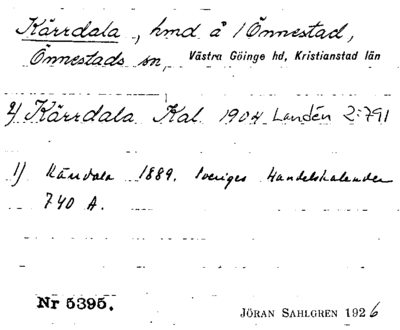 Kärrdala, hmd å 1 Önnestad,
Önnestads sn, Västra Göinge hd, Kristianstad län
2) Kärrdala Kal. 1904 Landén 2:791
1) Kärrdala 1889. Sveriges Handelskalender
740 A.
Nr 5395. JÖRAN SAHLGREN 1926